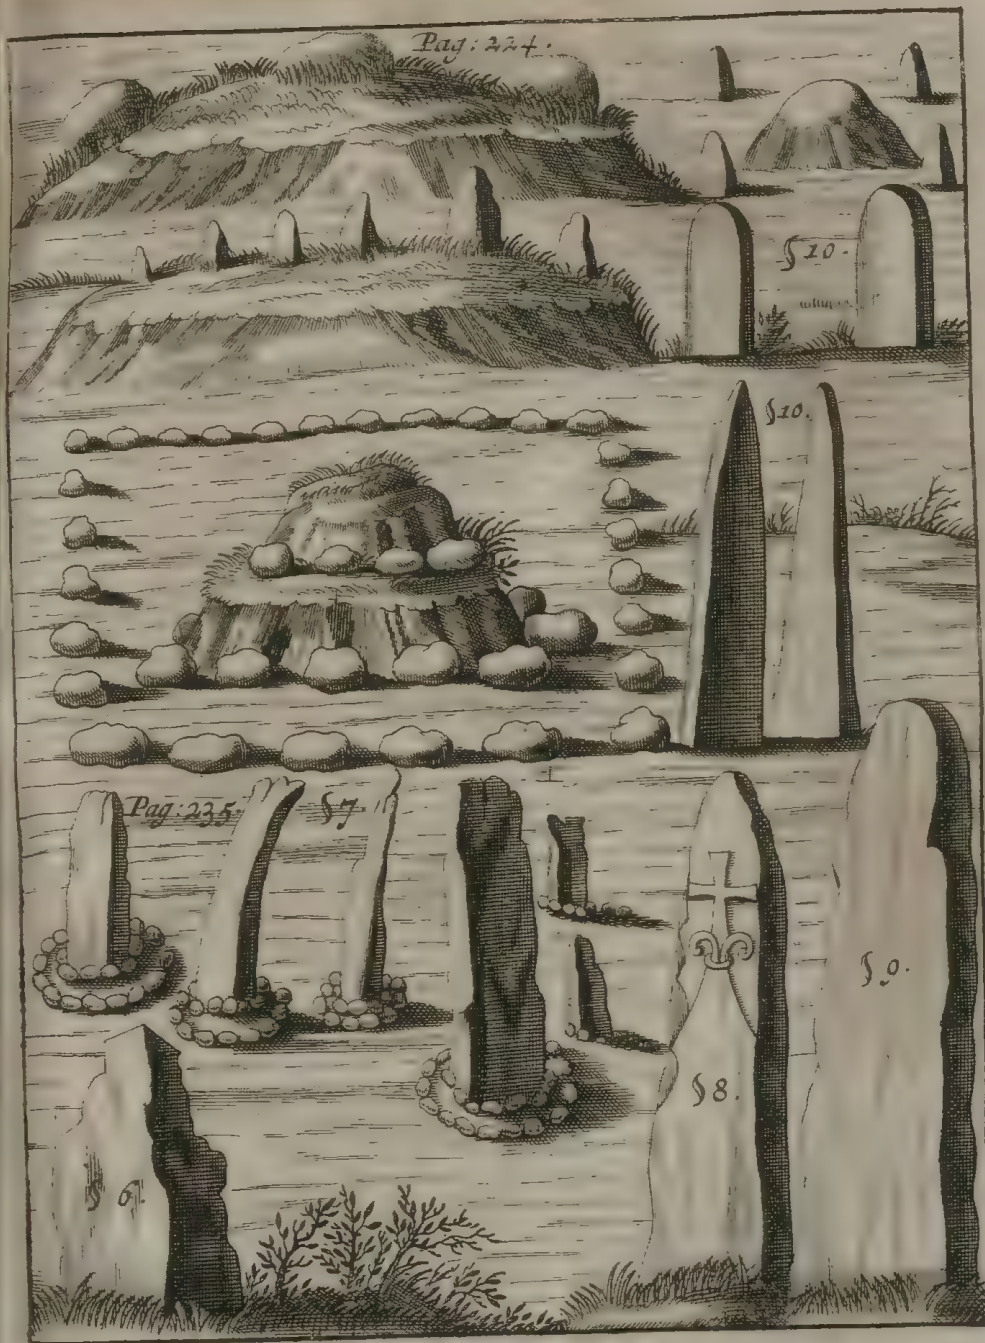 Pag: 224.
§ 10.
§ 10.
Pag: 235.
§ 7.
§ 9.
§ 8.
§ 6.